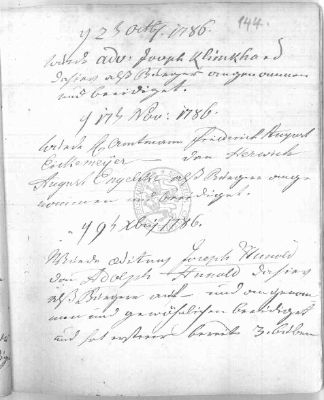 144.
d 2t Octb. 1786.
wurde adv. Joseph Klinckhard
dahier alß Bürger angenommen
und beeidiget.
d 17t Nov: 1786.
wurde H. Amtmann Friderich August
Eickemeyer — den
August als Bürger ange-
nommen und beeidiget.
d 9t Xbris 1786.
Wurde Joseph Hunold
Adolph Hunold dahier
alß Bürger auf- und angenom-
men und gewöhnlichen beeidiget
und hat ersterer bereits 3.